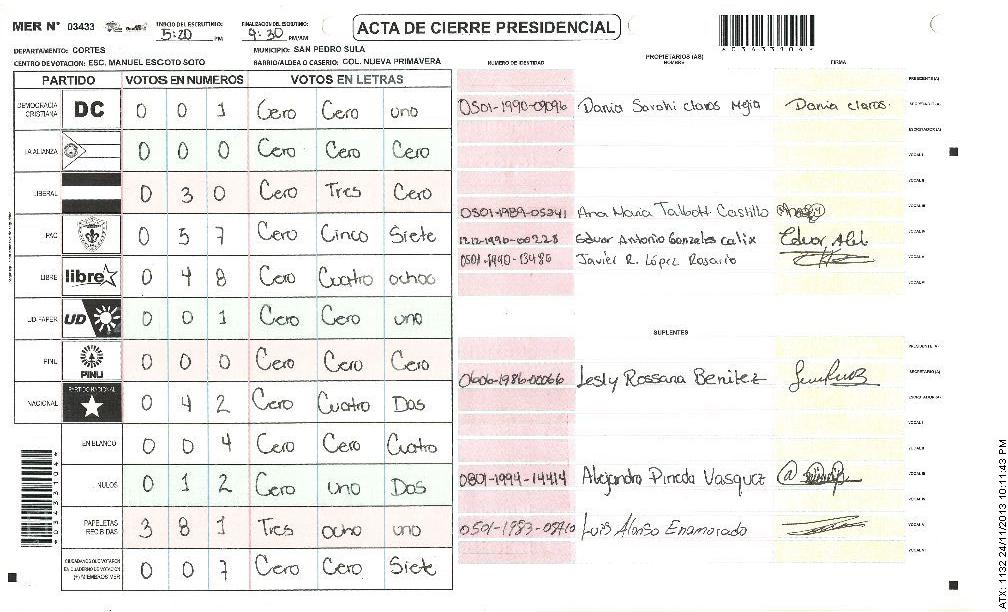 MER N° 03433 INICIO DEL ESCRUTINIO: 5:20 PM FINALIZACION DEL ESCRUTINIO: 9:30 PM ACTA DE CIERRE PRESIDENCIAL
DEPARTAMENTO: CORTES MUNICIPIO: SAN PEDRO SULA
CENTRO DE VOTACION: ESC. MANUEL ESCOTO SOTO BARRIO/ALDEA O CASERIO: COL. NUEVA PRIMAVERA
PARTIDO VOTOS EN NUMEROS VOTOS EN LETRAS
DEMOCRACIA CRISTIANA DC 0 0 1 Cero Cero uno
LA ALIANZA 0 0 0 Cero Cero Cero
LIBERAL 0 3 0 Cero Tres Cero
PAC 0 5 7 Cero Cinco Siete
LIBRE libre 0 4 8 Cero Cuatro ochoo
UD-FAPER UD 0 0 1 Cero Cero uno
PINU PINU 0 0 0 Cero Cero Cero
NACIONAL PARTIDO NACIONAL 0 4 2 Cero Cuatro Dos
EN BLANCO 0 0 4 Cero Cero Cuatro
NULOS 0 1 2 Cero uno Dos
PAPELETAS RECIBIDAS 3 8 1 Tres ocho uno
CIUDADANOS QUE VOTARON EN CUADERNO DE VOTACION (+) MIEMBROS MER 0 0 7 Cero Cero Siete
NUMERO DE IDENTIDAD PROPIETARIOS (AS) NOMBRE FIRMA
PRESIDENTE (A)
0501-1990-09096 Dania Sarahi Claros Mejia Dania Claros. SECRETARIO (A)
ESCRUTADOR (A)
VOCAL I
VOCAL II
0501-1989-05341 Ana Maria Talbott Castillo VOCAL III
1212-1990-00228 Eduar Antonio Gonzales calix VOCAL IV
0501-1990-13486 Javier R. López Rosario VOCAL V
SUPLENTES
PRESIDENTE (A)
0606-1986-00066 Lesly Rossana Benitez SECRETARIO (A)
ESCRUTADOR (A)
VOCAL I
VOCAL II
0801-1994-14414 Alejandra Pineda Vasquez VOCAL III
VOCAL IV
0501-1983-08410 Luis Alonso Enamorado VOCAL V
ATX: 1132 24/11/2013 10:11:43 PM